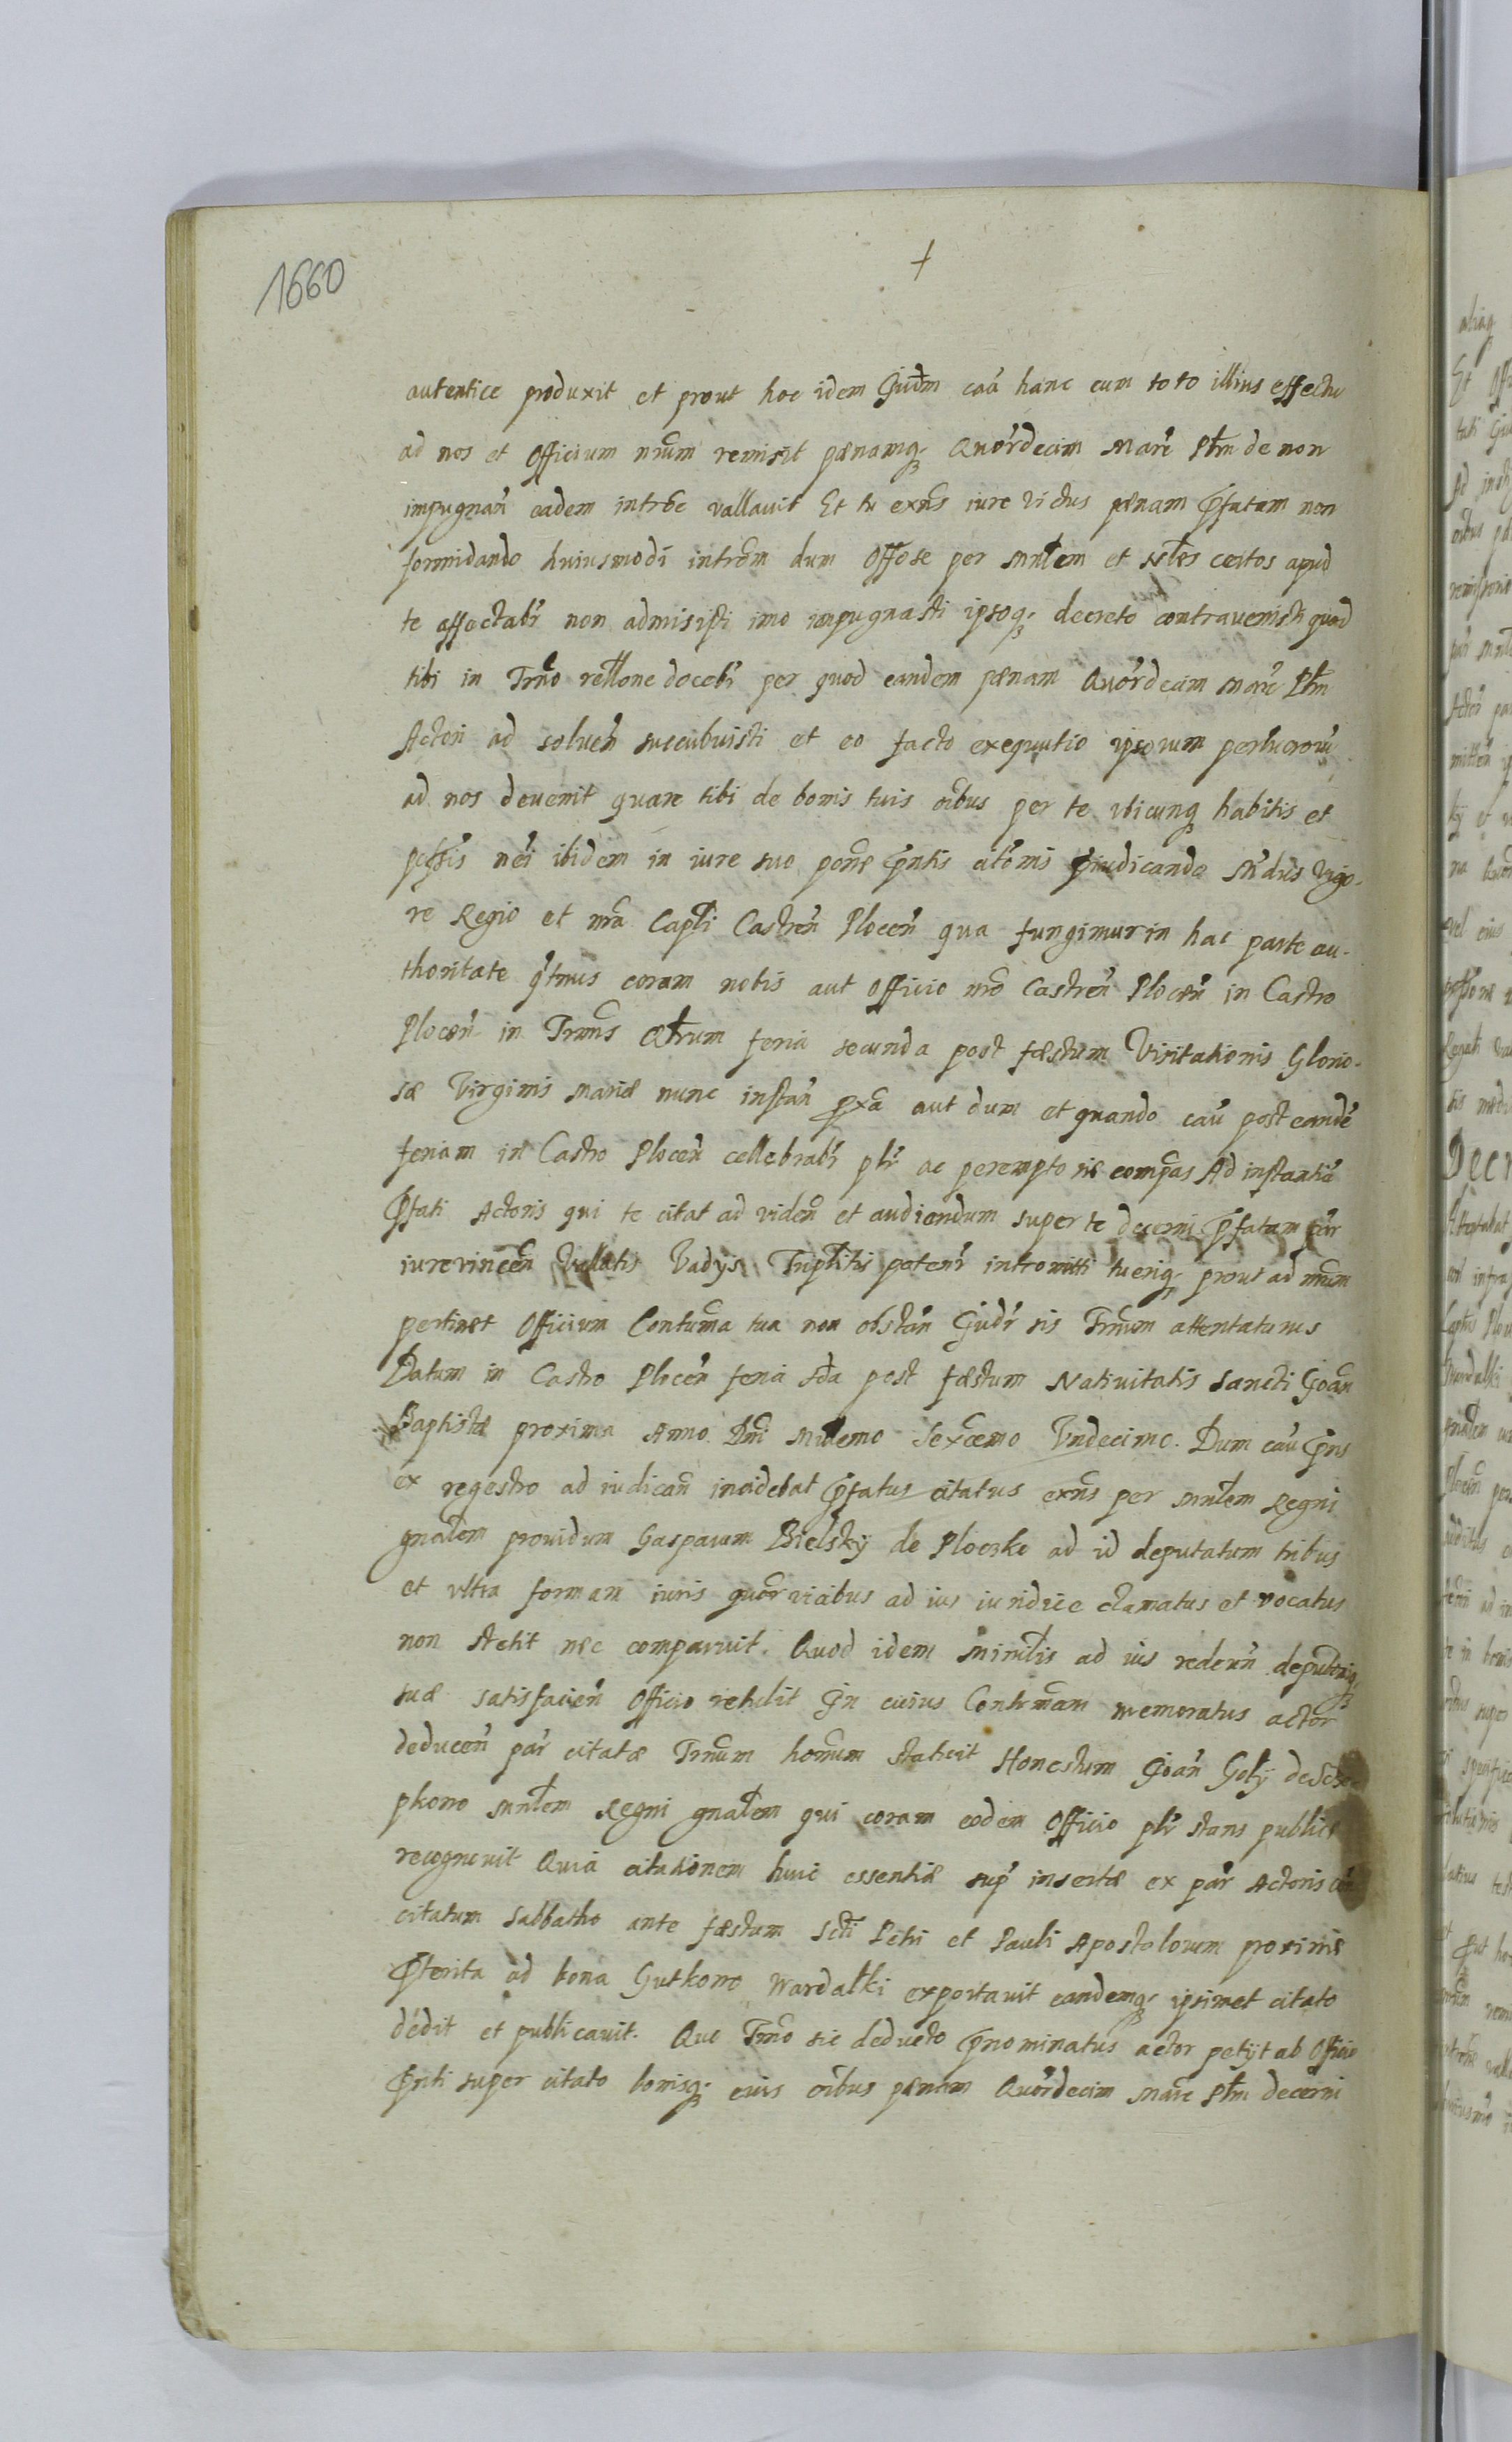 1660
+
autentice produxit et prout hoc idem Judm caã hanc cum toto illius effectu
ad nos et Officium nrũm remisit pænamq̃ Quõrdecim Marc Plm de non
impugnañ eadem introe vallauit Et tu exñs iure victus pænam Pfatam non
formidando huiusmodi introm dum Offose per Mnłem et Nłes certos apud
te affectabr̃ non admisisti imo impugnasti ipsoq̃ decreto contravenisti quod
tibi in Trño rełłone docebr̃ per quod eandem pænam Quõrdecim Marc Płm
Actori ad solueñ succubuisti et eo facto exequutio ipsorum perlucroru
ad nos devenit quare tibi de bonis tuis oĩbus per te vbicunq̃ habitis et
pòssis nẽi ibidem in iure suo poñe Pñtis citõnis Pjudicando Mdũs Vigo-
re Regio et nrã Capłi Castreñ Ploceñ qua fungimur in hac parte au-
thoritate q̃tnus coram nobis aut Officio nrõ Castreñ Ploceñ in Castro
Ploceñ in Trmñs Qłrum feria secunda post fæstum Visitationis Glorio-
sæ Virginis Mariæ nunc instañ pxã aut dum et quando caũ post eandẽ
feriam in Castro Ploceñ cellebrabr̃ płr ac peremptorie compas Ad instantiã
Pfati Actoris qui te citat ad videñ et audiendum super te decerni Pfatam
iurevinceñ Vallatis Vadys Triplitis poteñr intromitti tueriq̃ prout ad nrũm
pertinet Officium Contumã tua non obstañ Judr̃ sis Trmũm attentaturus
Datum in Castro Ploceñ feria sdã post fæstum Nativitatis Sancti Joañ
Baptistæ proxima Anno Dni Miłłemo Sexcemo Vndecimo. Dum caũ Pns
ex regestro ad iudicañ incidebat Pfatus citatus exñs per Mnłem Regni
gnałem prouidum Gasparum Bielsky de Ploczko ad id deputatum tribus
et vltra formam iuris quõr vicibus ad ius iuridice clamatus et vocatus
non stetit nec comparuit. Quod idem Minłtis ad ius redeuñ deputoniq̃
suæ satisfacieñ Officio retulit Jn cuius Contumãm memoratus actor
deduceñ par̃ citatæ Trmũm honum statuit Honestum Joañ Goły de
pkono Mnłem Regni gnałem qui coram eodem Officio płr stans publice
recognouit Quia citationem huic essentiæ sup̃ insertæ ex par̃ Actoris
citatum Sabbatho ante fæstum Scti Petri et Pauli Apostolorum proxime
Pterita ad bona Gutkowo Wardałki exportauit eandemq̃ ipsimet citato
dedit et publicauit. Quo Trmõ sic deducto Pnominatus actor petyt ab Officio
Pnti super citato bonisq̃ euis oĩbus pænam Quõrdecim Marc Płm decerni